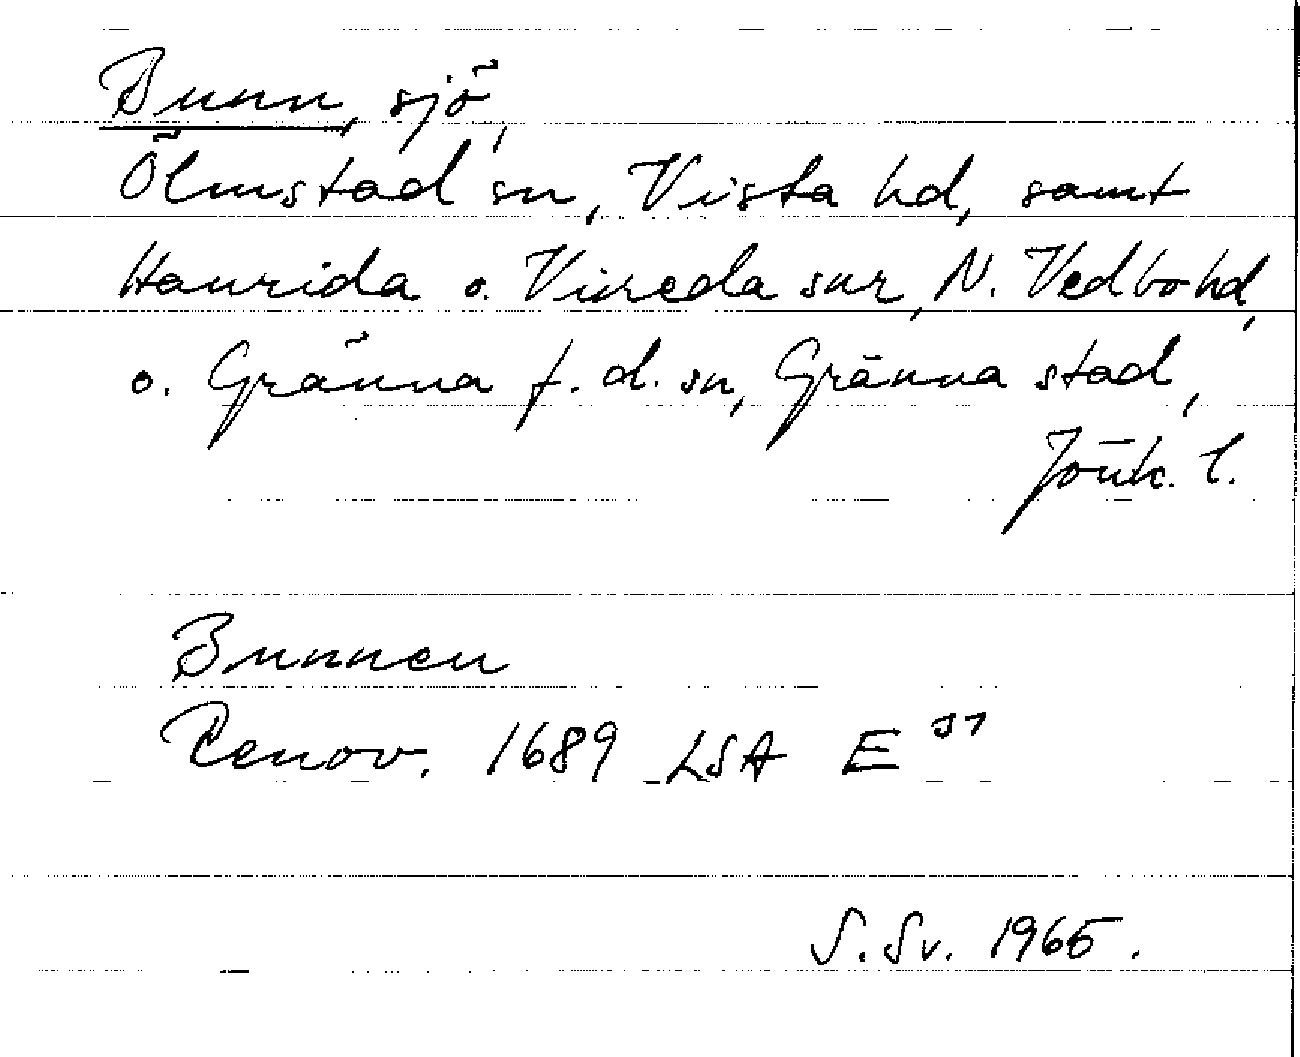 Bunn, sjö,
Ölmstad sn, Vista hd, samt
Haurida o. Vireda snr, N. Vedbo hd,
o. Gränna f. d. sn, Gränna stad,
Jönk. l.
Bunnen
Renov. 1689 LSA E 57
S. Sv. 1965.